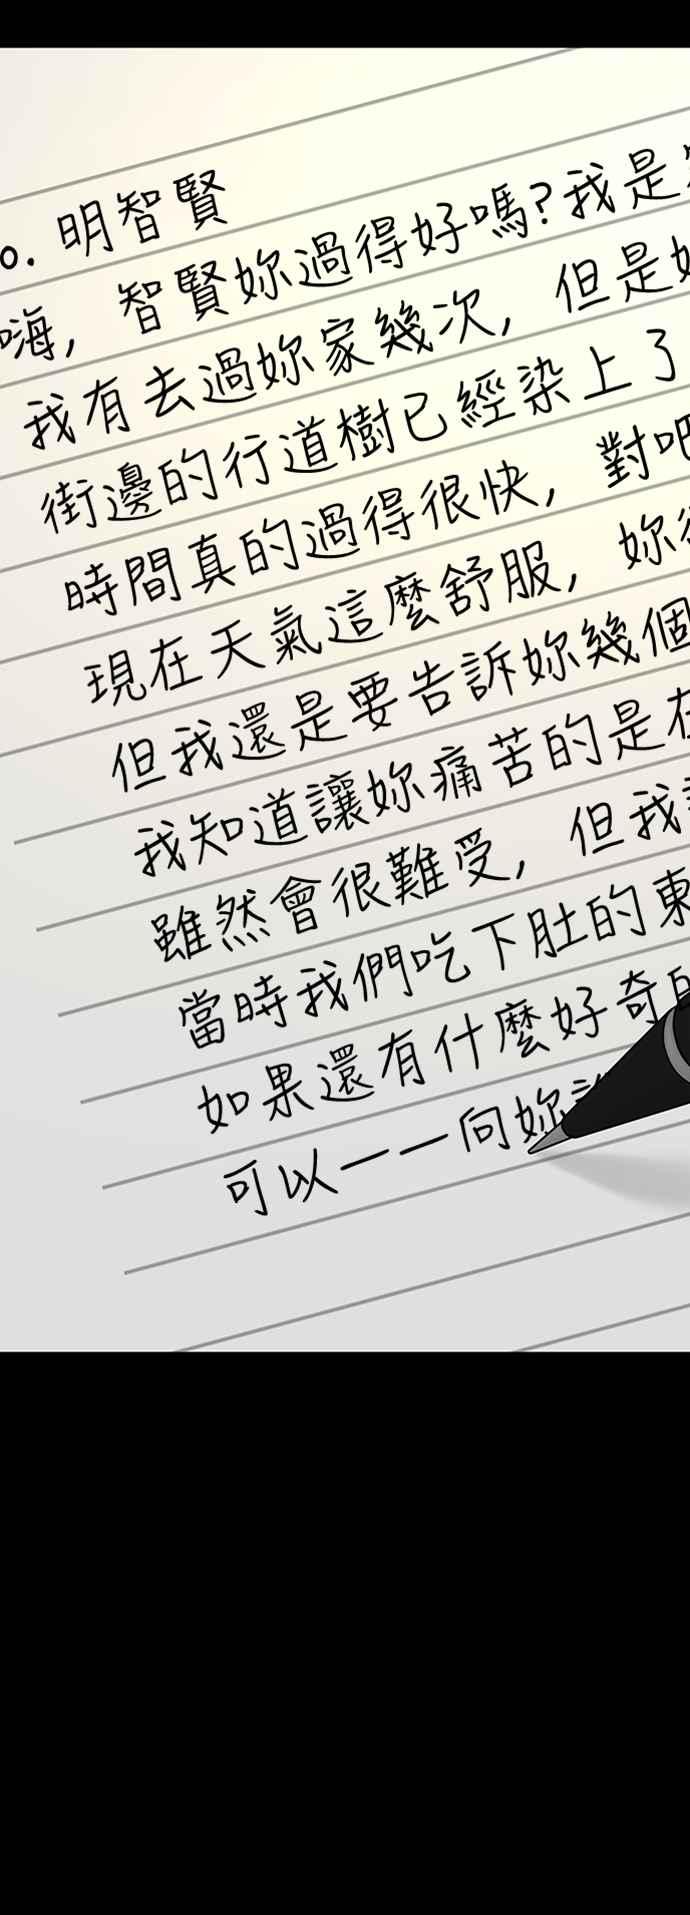 o. 明智賢
嗨, 智賢妳過得好嗎?我是
我有去過妳家幾次, 但是妳
街邊的行道樹已經染上了
時間真的過得很快, 對吧
現在天氣這麼舒服, 妳
但我還是要告訴妳幾個
我知道讓妳痛苦的是在
雖然會很難受, 但我
當時我們吃下肚的東
如果還有什麼好奇的
可以一一向妳